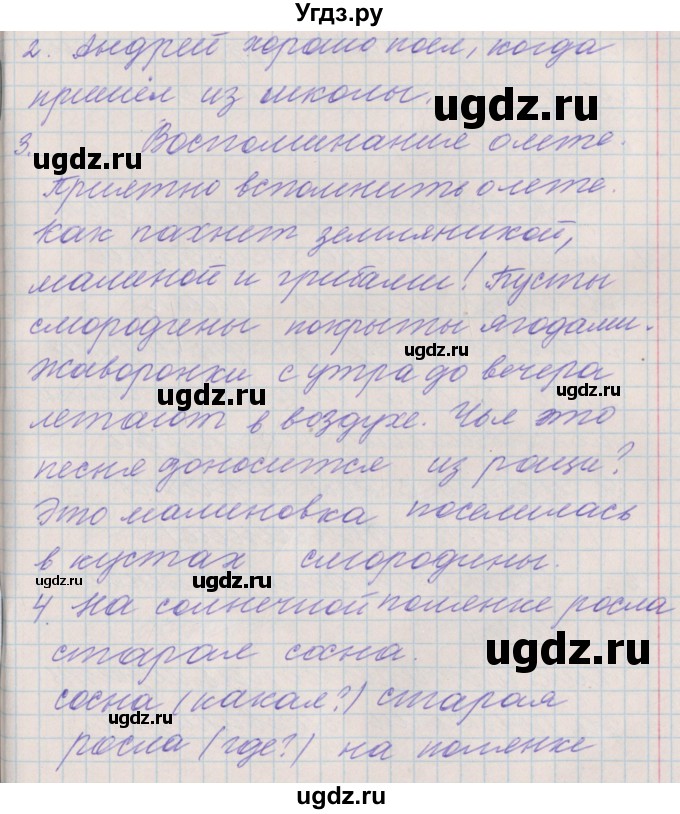 Угдз.ру
2. Андрей хорошо поел, когда
пришёл из школы.
3. Воспоминания о лете.
Приятно вспомнить о лете.
Как пахнет земляникой,
малиной и грибами! Кусты
смородины покрыты ягодами.
Жаворонки с утра до вечера
летают в воздухе. Чья это
песня доносится из рощи?
Это малиновка поселилась
в кустах смородины.
4 На солнечной полянке росла
старая сосна.
сосна (какая?) старая
росла (где?) на полянке
ugdz.ru
ugdz.ru
ugdz.ru
ugdz.ru
ugdz.ru
ugdz.ru
ugdz.ru
ugdz.ru
ugdz.ru
ugdz.ru
ugdz.ru
ugdz.ru